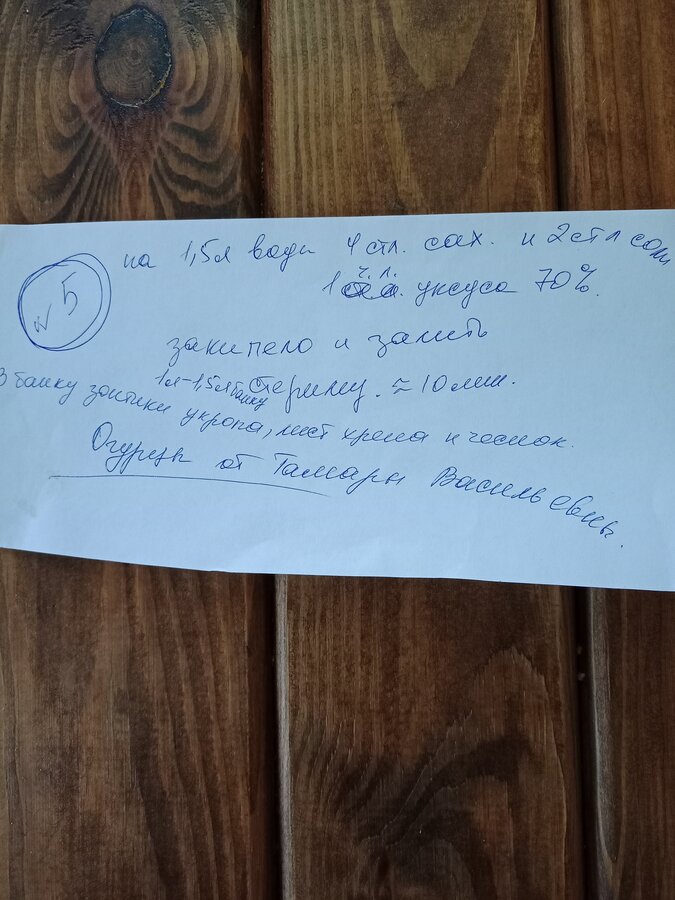 №5
на 1,5л воды 4 стл. сах. и 2 стл соли
1 ч.л. уксуса 70%.
закипело и залить
1л-1,5л банку стерилиз. ≈ 10 мин.
В банку зонтики укропа, лист хрена и чеснок.
Огурцы от Тамары Васильевны.